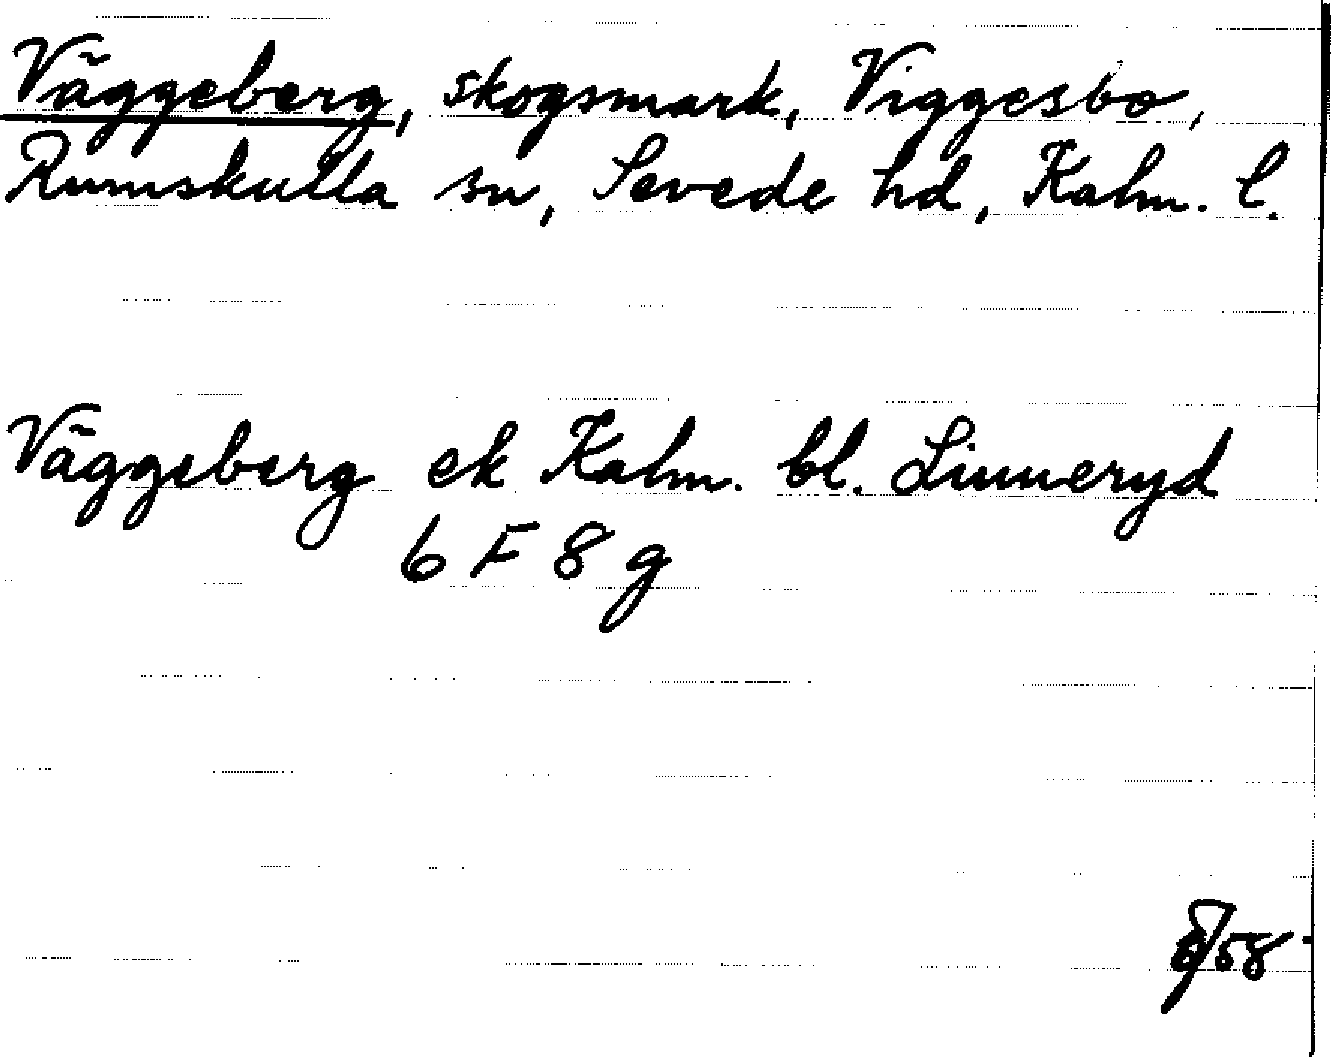 Väggeberg, skogsmark, Viggesbo,
Rumskulla sn, Sevede hd, Kalm. l.
Väggeberg ek Kalm. bl. Linneryd
6 F 8 g